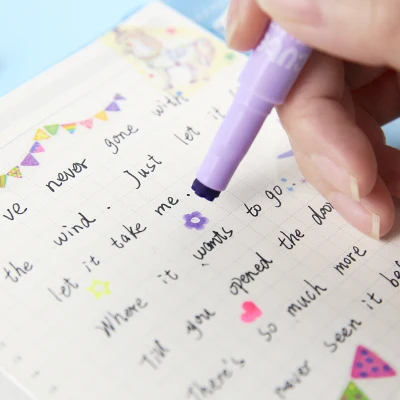 've never gone with
the wind. Just let it
let it take me.
Where it wants to go
Till you opened the door
There's so much more
never seen it be